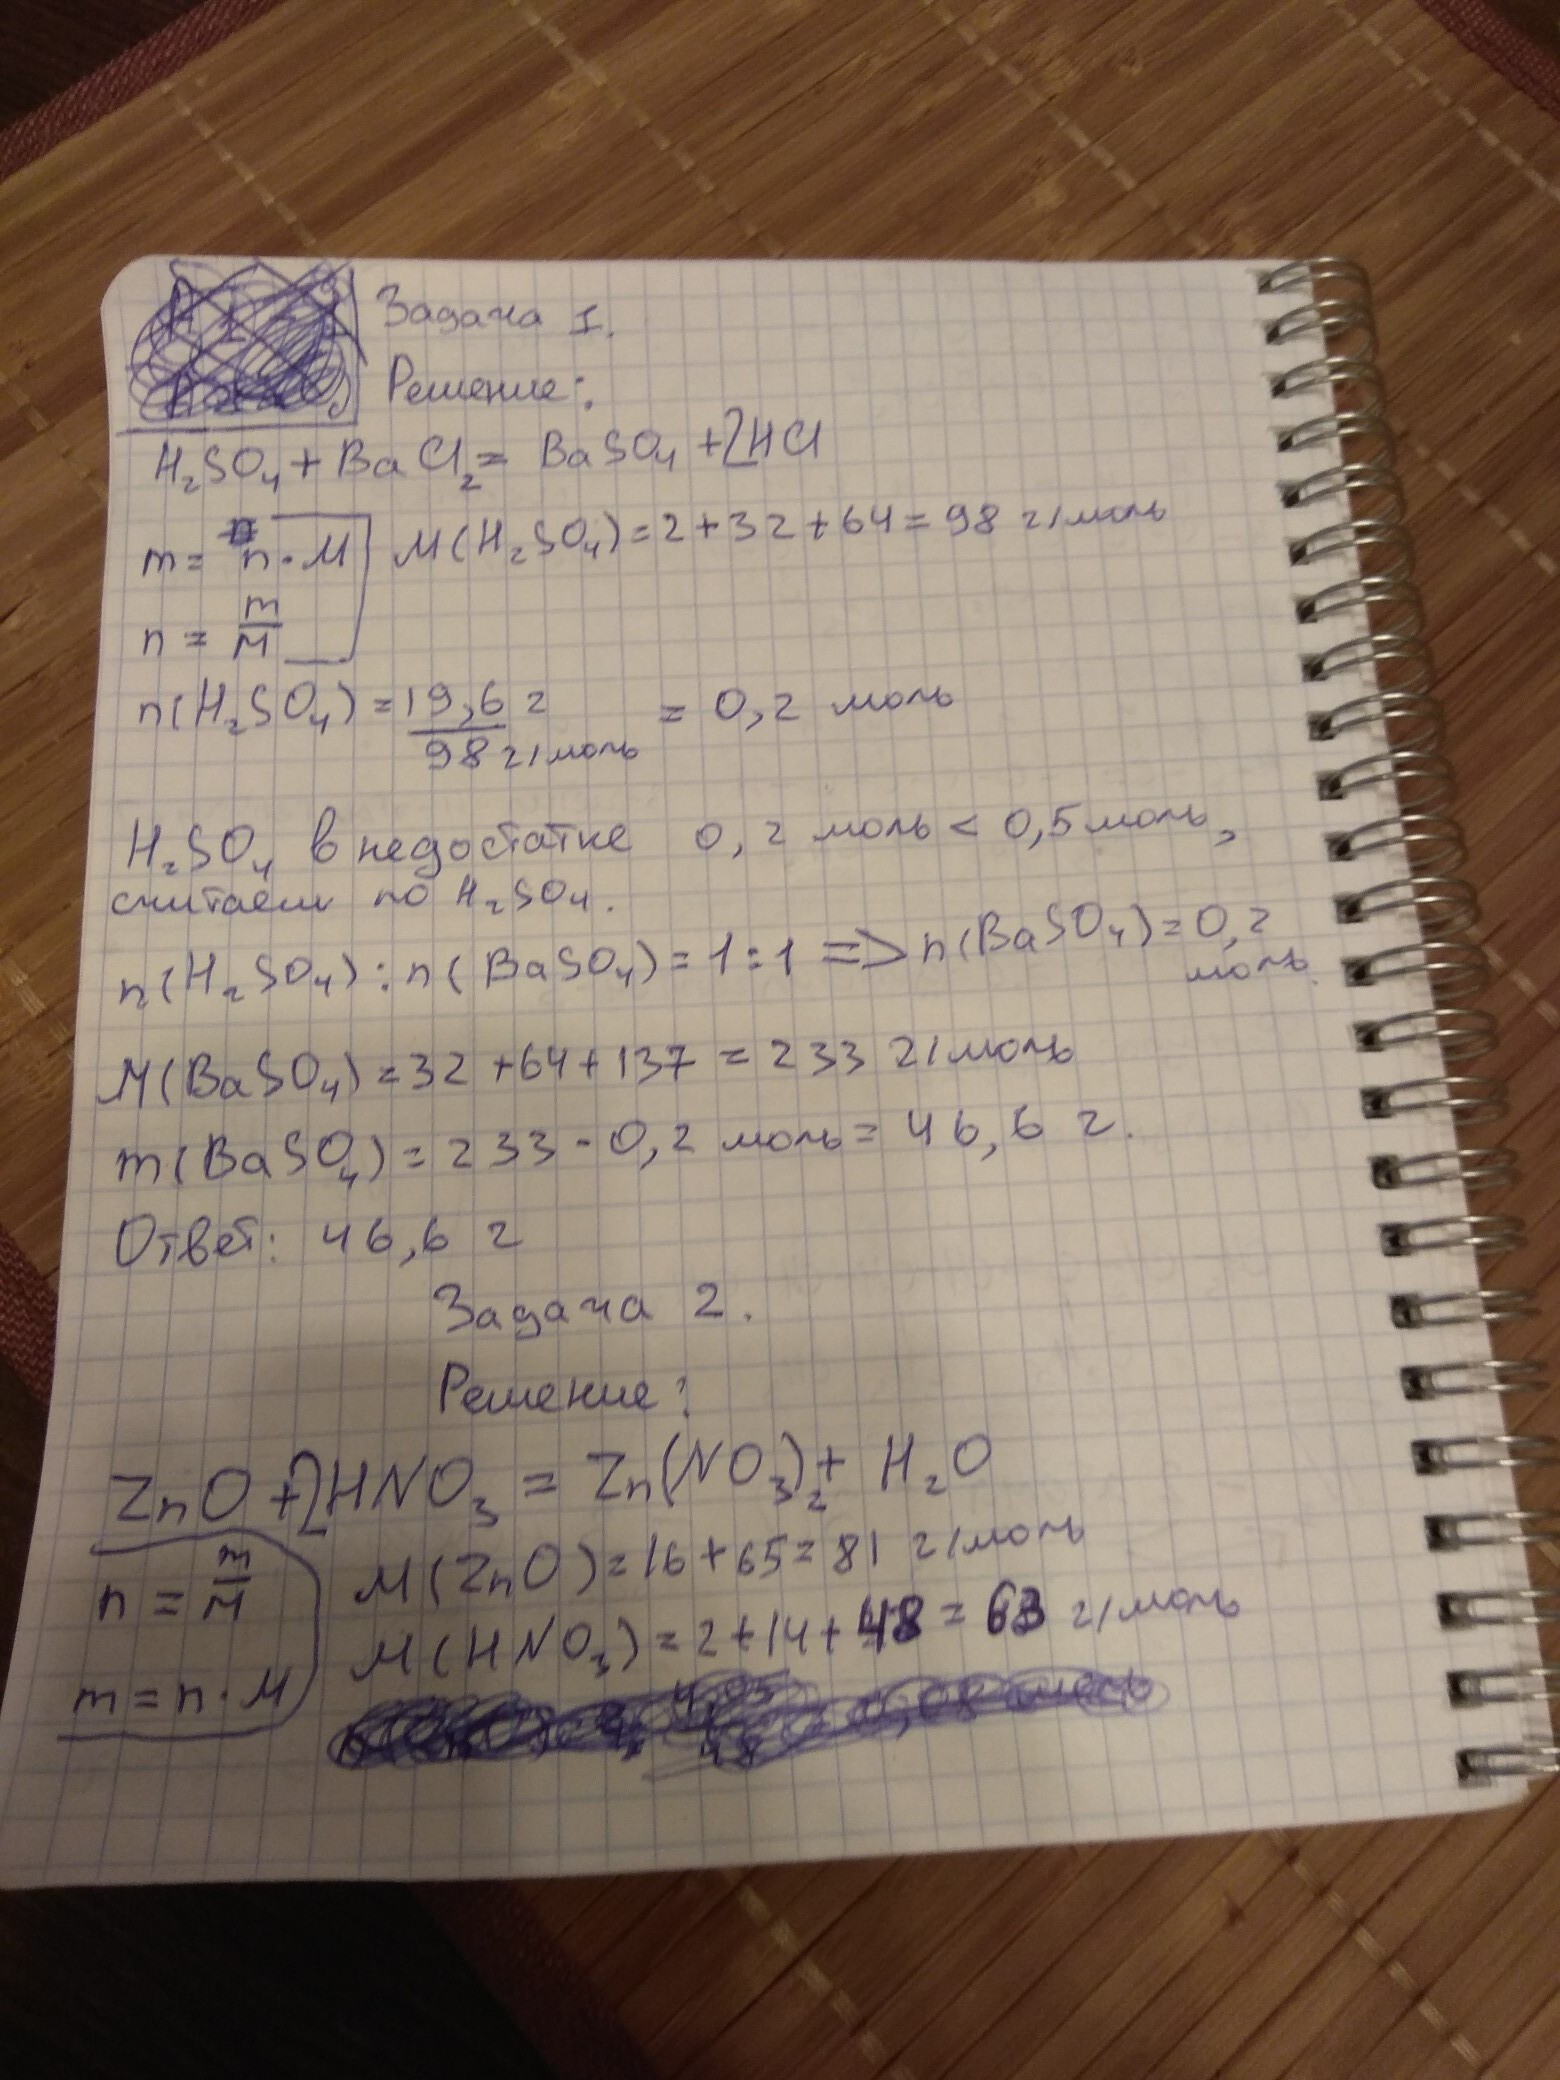 Задача 1.
Решение:
H₂SO₄ + BaCl₂ = BaSO₄ + 2HCl
m = n · M
M(H₂SO₄) = 2 + 32 + 64 = 98 г/моль
n = m/M
n(H₂SO₄) = 19,6 г / 98 г/моль = 0,2 моль
H₂SO₄ в недостатке 0,2 моль < 0,5 моль,
считаем по H₂SO₄.
n(H₂SO₄) : n(BaSO₄) = 1 : 1 => n(BaSO₄) = 0,2 моль.
M(BaSO₄) = 32 + 64 + 137 = 233 г/моль
m(BaSO₄) = 233 · 0,2 моль = 46,6 г.
Ответ: 46,6 г
Задача 2.
Решение:
ZnO + 2HNO₃ = Zn(NO₃)₂ + H₂O
n = m/M
M(ZnO) = 16 + 65 = 81 г/моль
M(HNO₃) = 2 + 14 + 48 = 63 г/моль
m = n · M